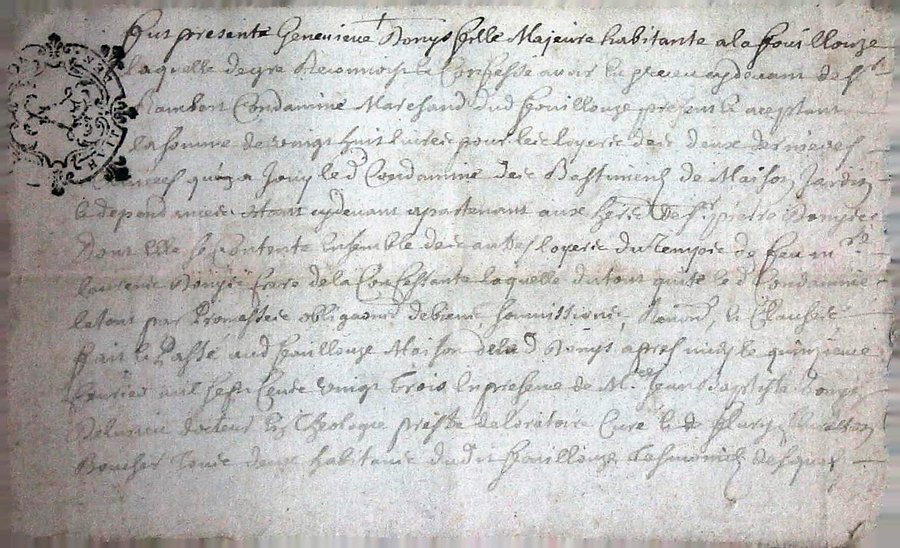 fut presente Genevieve Bonys fille Majeure habitante a la fouillouze
laquelle de gre Reconnoist et Confesse avoir eu et receu cy devant de Sr
Condamine Marchand dud fouillouze present et aceptant
la somme de vingt huit livres pour les loyers des deux dernieres
a Jouy led Condamine des Bastiment de Maison Jardin
et dependances estant cy devant apartenant aux de Sr pierre
Dont elle se contente Ensemble des autres loyers du temps de feu
frere de la Confessante laquelle du tout quitte led Condamine
par Promesses obligaons de biens soumissions, Renonc, et Clauses
fait et Passé aud fouillouze Maison de lad Bonys apres midy le quinzieme
mil sept Cents vingt trois En presence de Mre Jean Baptiste
docteur En Theologie prestre de loratoire Curé
Boucher Tous deux habitans dud fouillouze Tesmoins